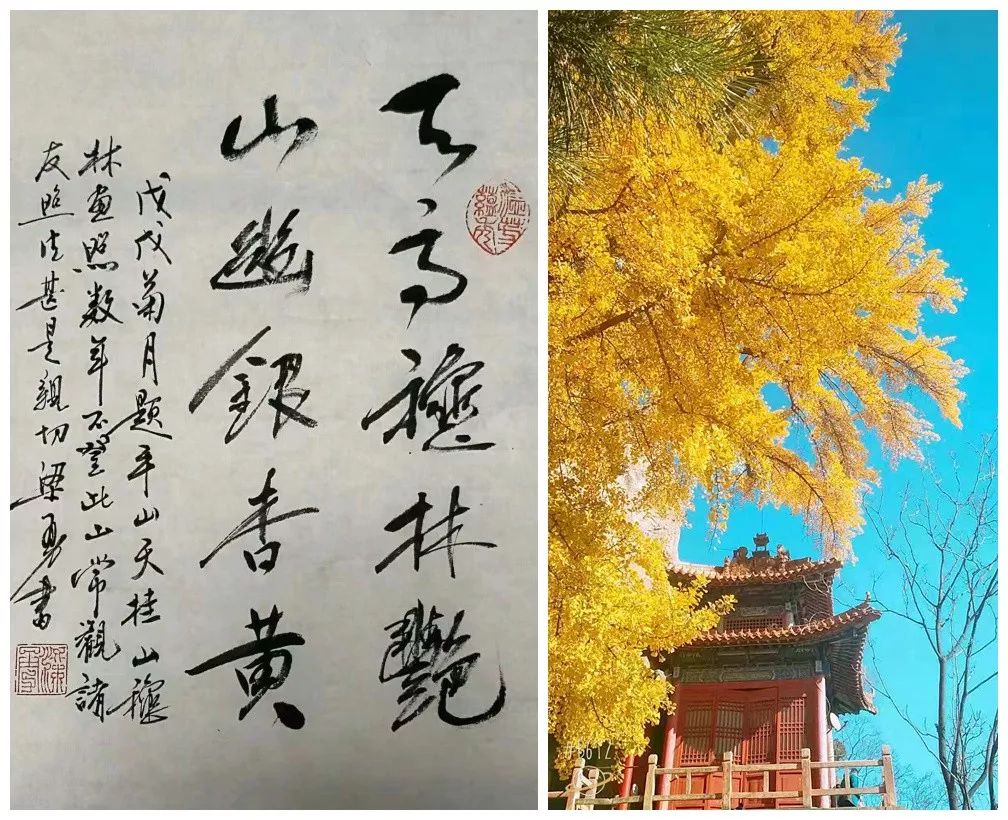 天高穠林艷
山幽銀杏黃
戊戌菊月題平山天桂山穠
林畫照數年不登此山常觀諸
友照片甚是親切梁勇書